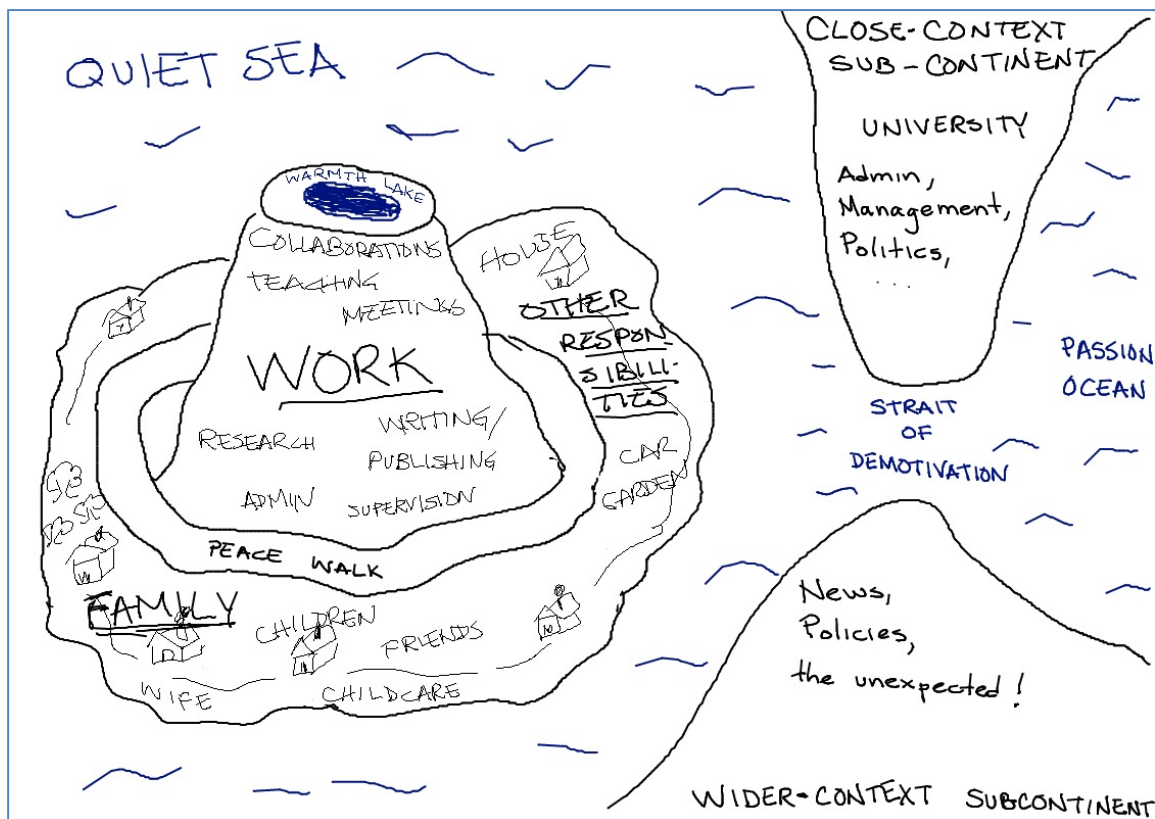 QUIET SEA
WARMTH LAKE
COLLABORATIONS
TEACHING
MEETINGS
WORK
RESEARCH
WRITING/
PUBLISHING
ADMIN
SUPERVISION
PEACE WALK
HOUSE
OTHER
RESPON-
SIBILI-
TIES
CAR
GARDEN
FAMILY
CHILDREN
FRIENDS
WIFE
CHILDCARE
CLOSE-CONTEXT
SUB-CONTINENT
UNIVERSITY
Admin,
Management,
Politics,
...
PASSION
OCEAN
STRAIT
OF
DEMOTIVATION
News,
Policies,
the unexpected!
WIDER-CONTEXT SUBCONTINENT